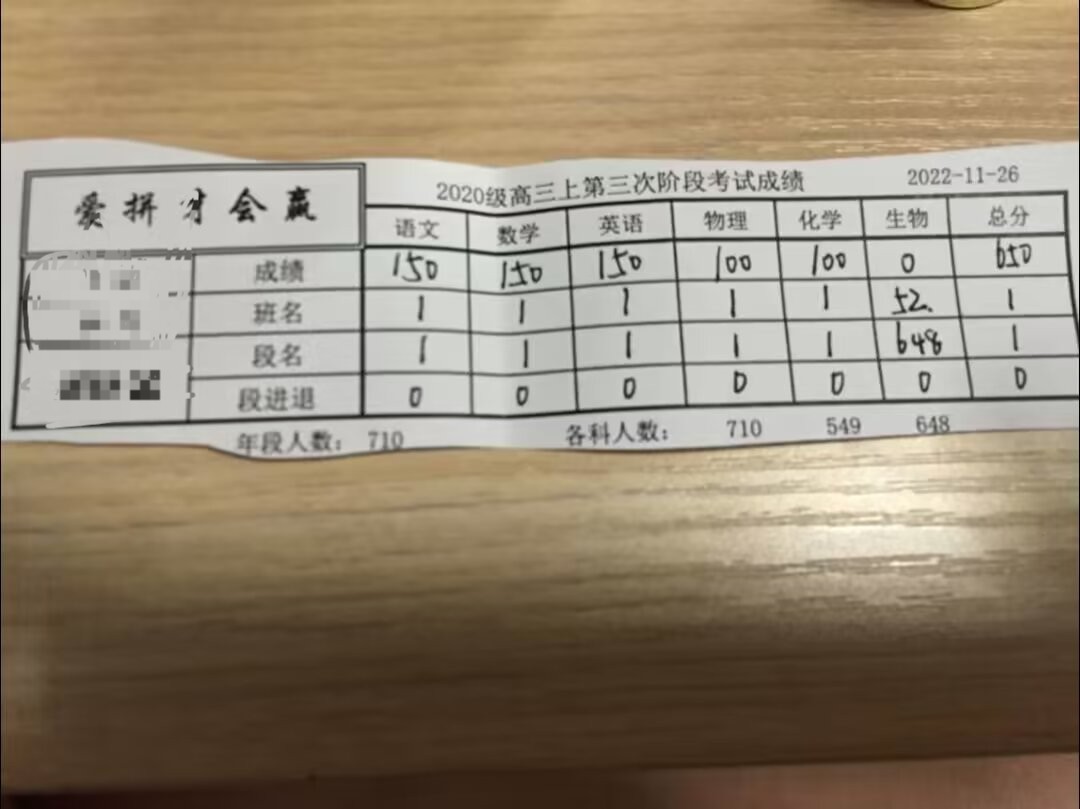 爱拼才会赢
2020级高三上第三次阶段考试成绩 2022-11-26
语文 数学 英语 物理 化学 生物 总分
成绩 150 150 150 100 100 0 650
班名 1 1 1 1 1 52. 1
段名 1 1 1 1 1 648 1
段进退 0 0 0 0 0 0 0
年段人数: 710 各科人数: 710 549 648